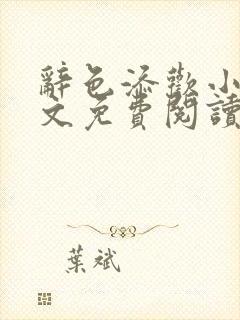 辭色添歡小
文免費閱讀
葉斌